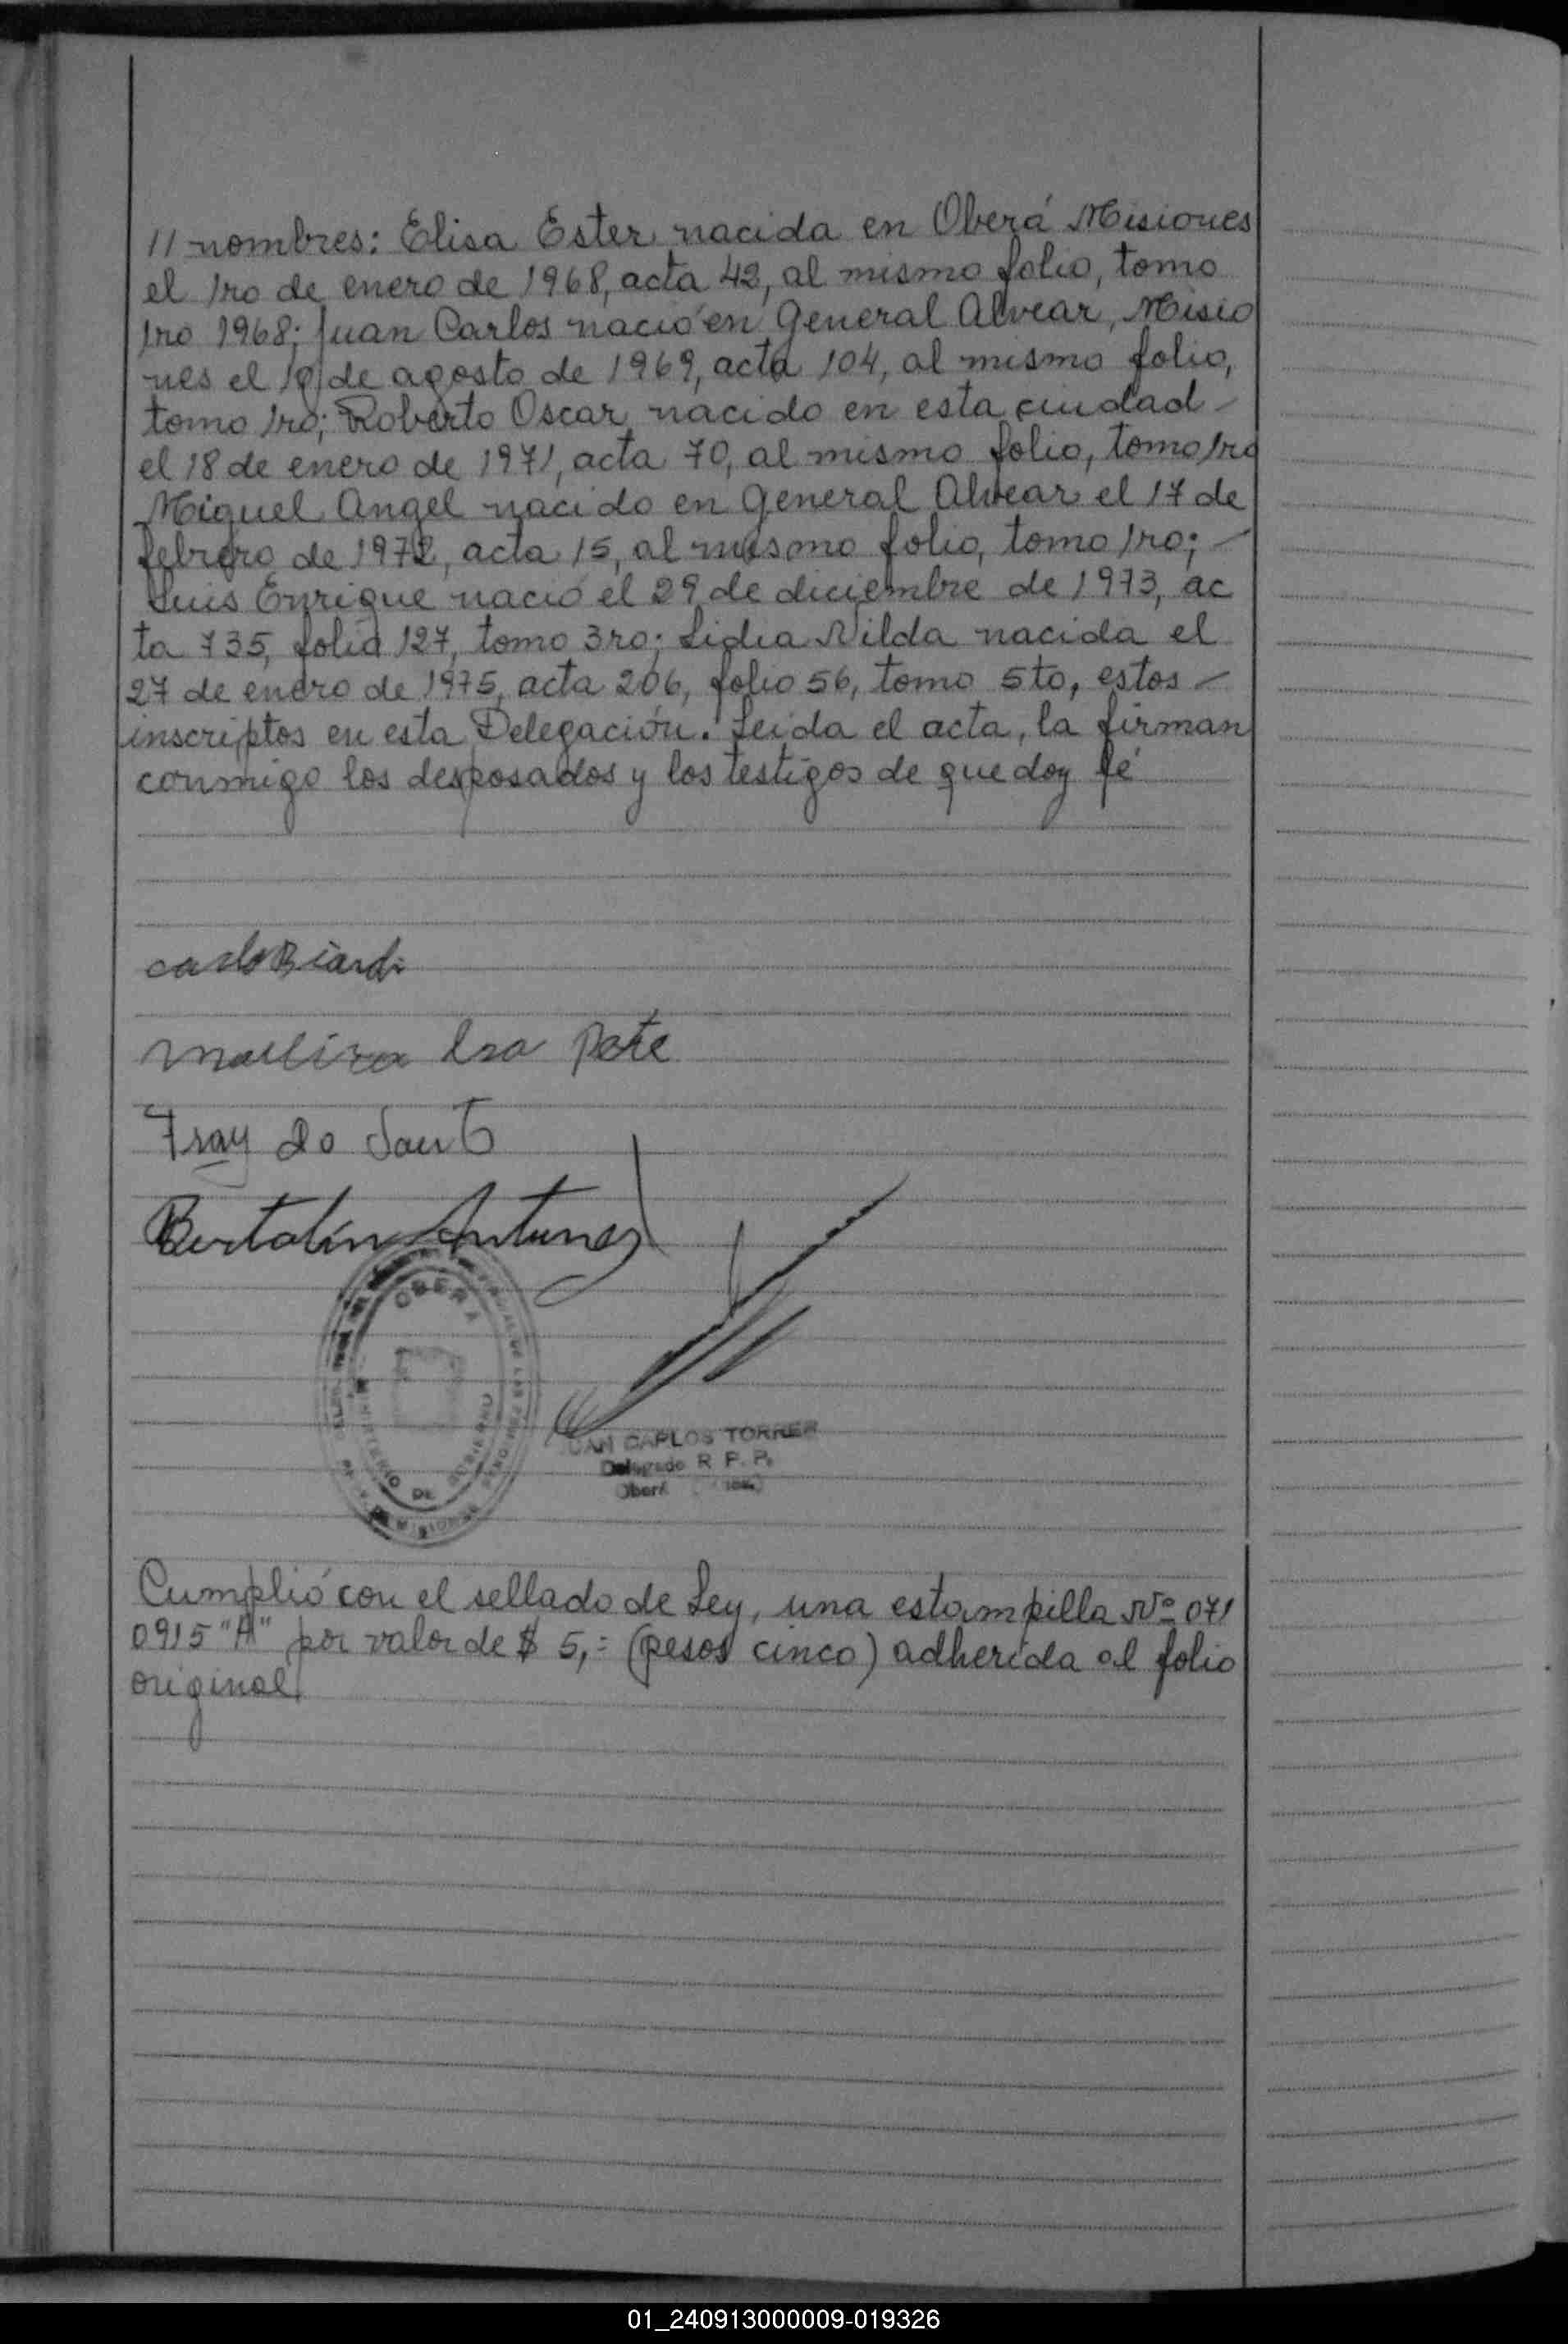 // nombres: Elisa Ester nacida en Oberá Misiones
el 1ro de enero de 1968, acta 42, al mismo folio, tomo
1ro 1968; Juan Carlos nació en General Alvear, Misio
nes el 19 de agosto de 1969, acta 104, al mismo folio,
tomo 1ro; Roberto Oscar nacido en esta ciudad -
el 18 de enero de 1971, acta 70, al mismo folio, tomo 1ro
Miguel Angel nacido en General Alvear el 17 de
febrero de 1972, acta 15, al mismo folio, tomo 1ro; -
Luis Enrique nació el 29 de diciembre de 1973, ac
ta 735, folio 127, tomo 3ro; Lidia Nilda nacida el
27 de enero de 1975, acta 206, folio 56, tomo 5to, estos -
inscriptos en esta Delegación. Leida el acta, la firman
conmigo los desposados y los testigos de que doy fé
Fray do Sant
Bertolin Antunez
OBERA
MINISTERIO DE GOBIERNO
MISIONES
JUAN CARLOS TORRES
Delegado R. P. P.
Oberá
Cumplió con el sellado de Ley, una estampilla Nº 071
0915 "A" por valor de $ 5,= (pesos cinco) adherida al folio
original.
01_240913000009-019326